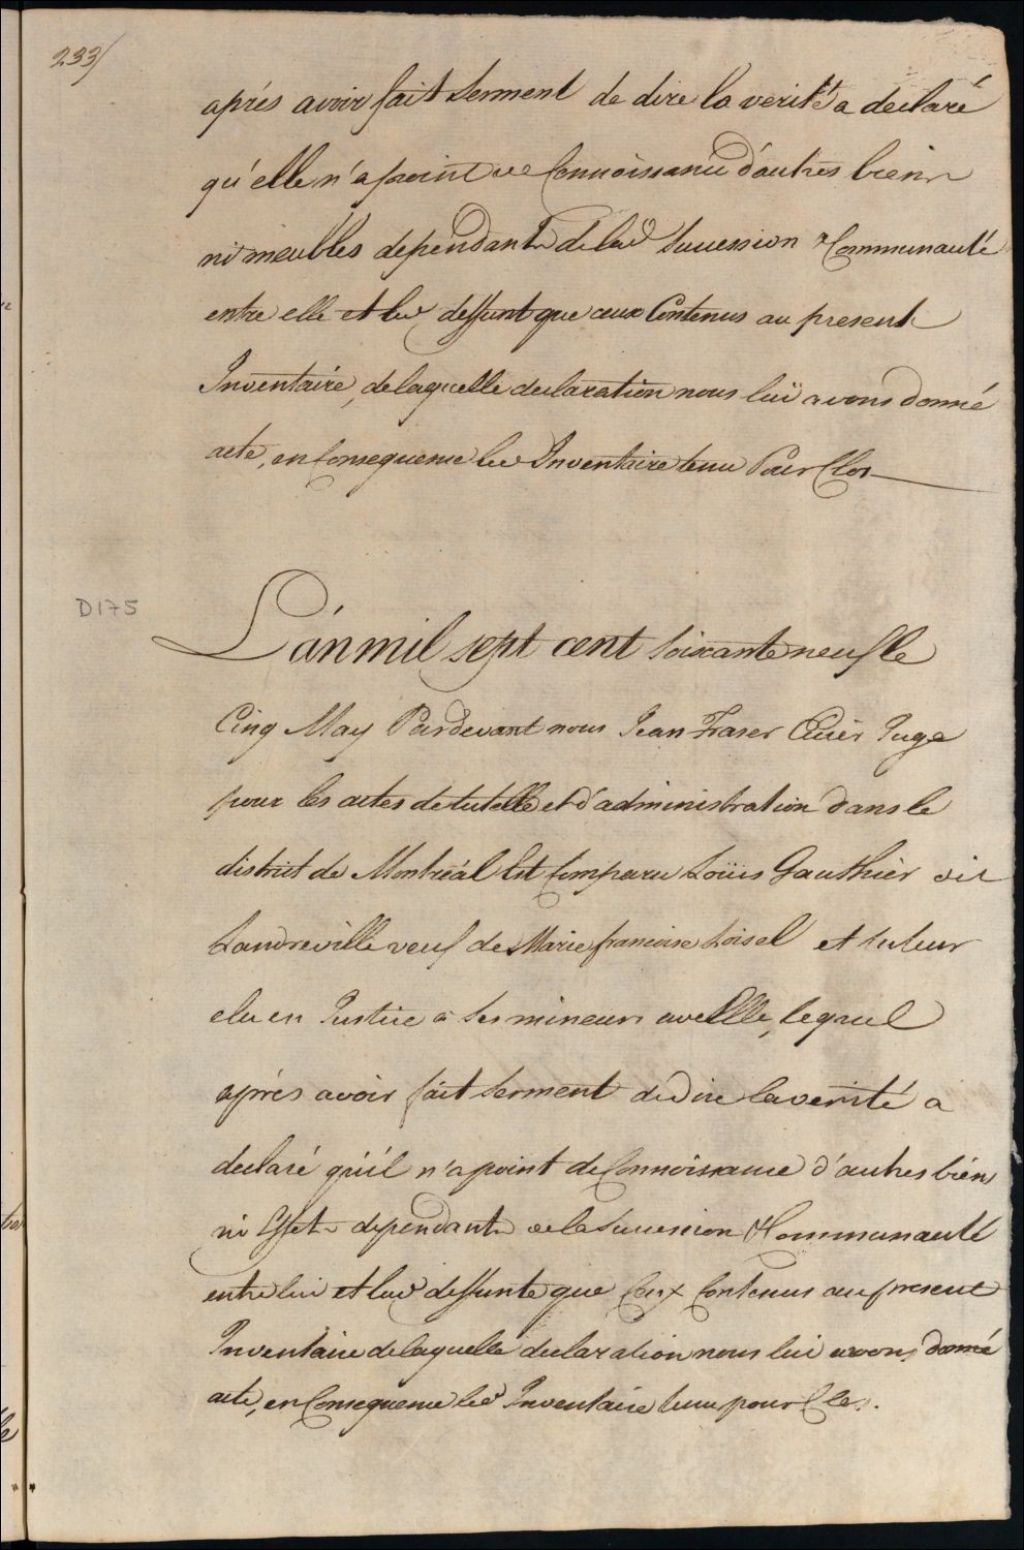 233/
après avoir fait serment de dire la verité a declaré
qu'elle n'a point de Connoissance d'autres biens
ni meubles dependants de lad succession & Communauté
entre elle et led deffunt que ceux Contenus au present
Inventaire, de laquelle declaration nous lui avons donné
acte, en Consequence led Inventaire tenu Pour Clos
D175
L'an mil sept cent soixante neuf le
Cinq May Pardevant nous Jean Fraser Ecuier Juge
pour les actes de tutelle et d'administration dans le
district de Montréal Est Comparu Loüis Gauthier dit
Landreville veuf de Marie francoise Loisel et tuteur
elu en Justice a ses mineurs avec Elle, lequel
après avoir fait serment de dire la verité a
declaré qu'il n'a point de Connoissance d'autres biens
ni Effets dependants de la succession & Communauté
entre lui et lad deffunte que Ceux Contenus au present
Inventaire de laquelle declaration nous lui avons donné
acte, en Consequence led Inventaire tenu pour Clos.